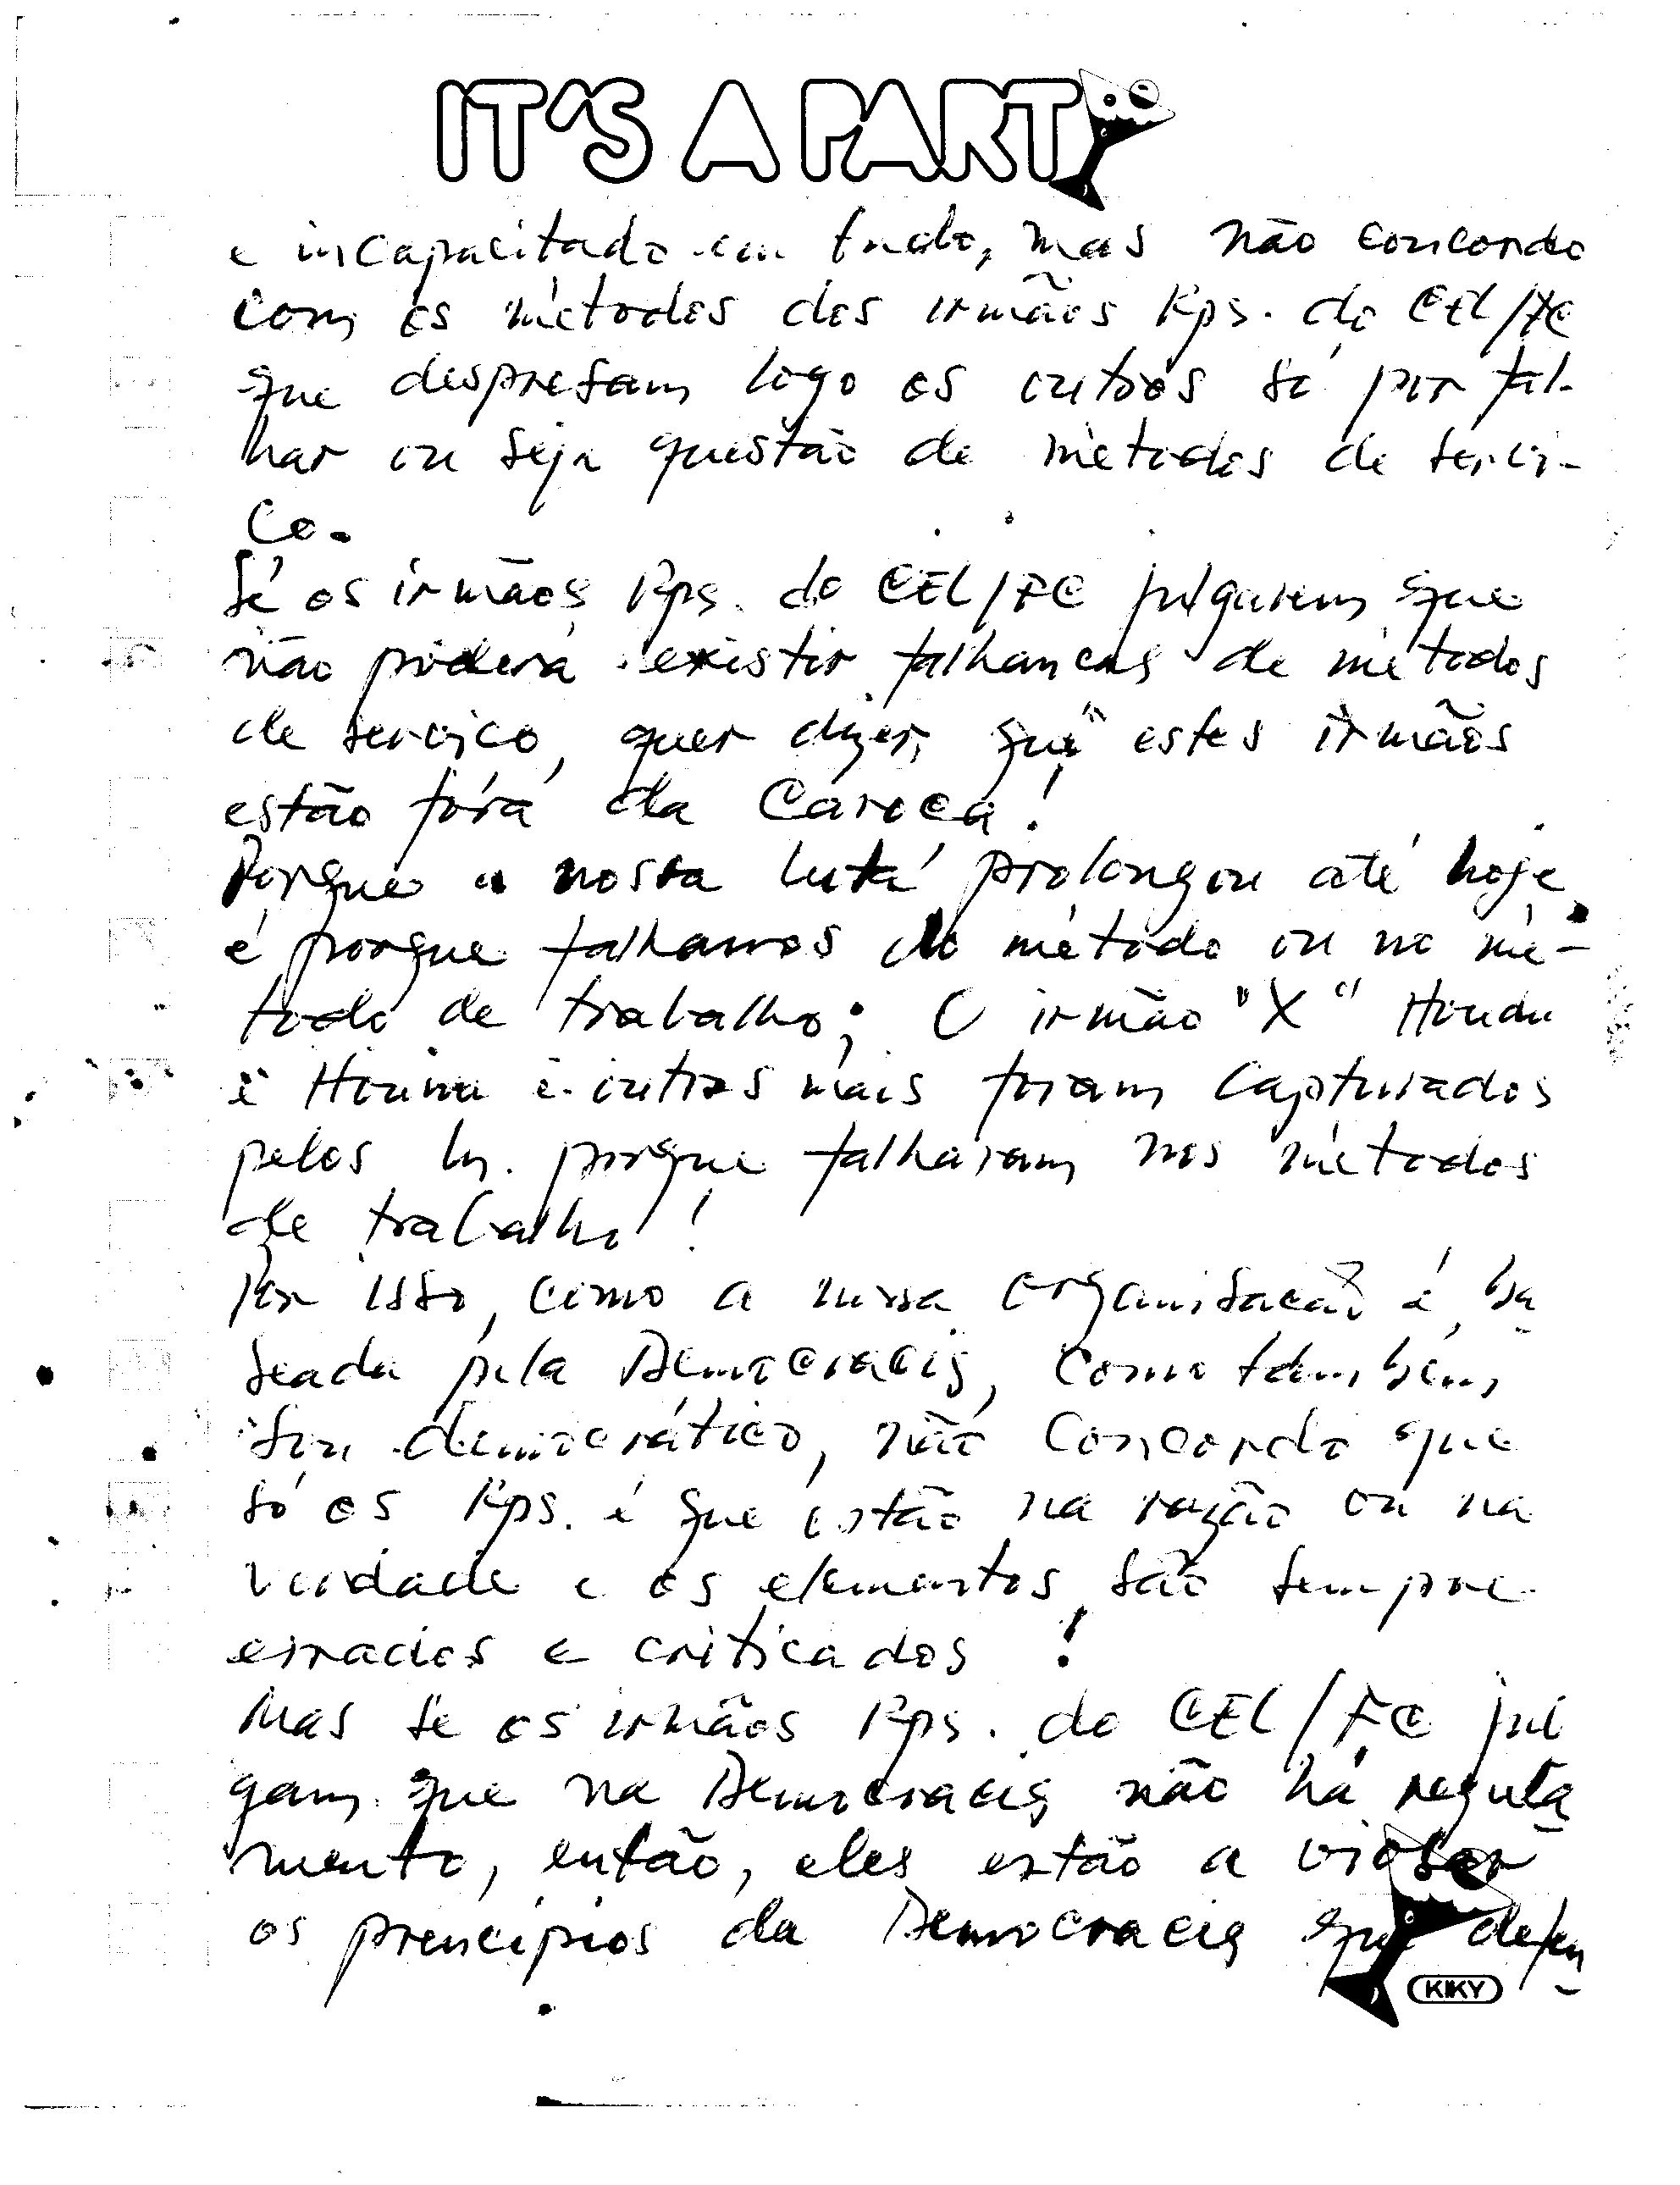 IT'S A PARTY
e incapacitado em tudo, mas não concordo
com os métodos dos irmãos Rps. do CEL/FC
que despresam logo os outros só por fal-
har ou seja questão de métodos de servi-
co.
Sé os irmãos Rps. do CEL/FC julgarem que
não poderá existir falhancas de métodos
de servico, quer dizer, que estes irmãos
estão fóra da Caroca!
Porque a nossa luta prolongou até hoje,
é porque falhamos do método ou no mé-
todo de trabalho; O irmão "X" Hondu
e e outros mais foram capturados
pelos In. porque falharam nos métodos
de trabalho!
Por isso, como a nossa organisacaõ é ba
seada pela Democracia, como também
sou democrático, não concordo que
só os Rps. é que estão na razão ou na
verdade e os elementos são sempre
errados e criticados!
Mas se os irmãos Rps. do CEL/FC jul
gam que na Democracia não há regula
mento, então, eles estão a violar
os princípios da Democracia que defen
KIKY